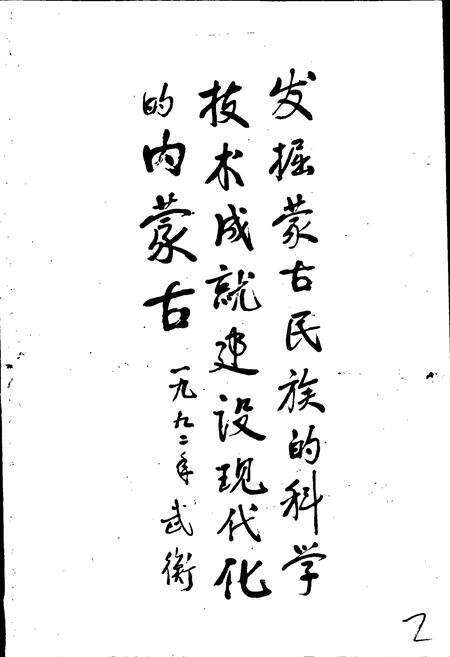 发掘蒙古民族的科学
技术成就建设现代化
的内蒙古
一九九二年 武衡
2